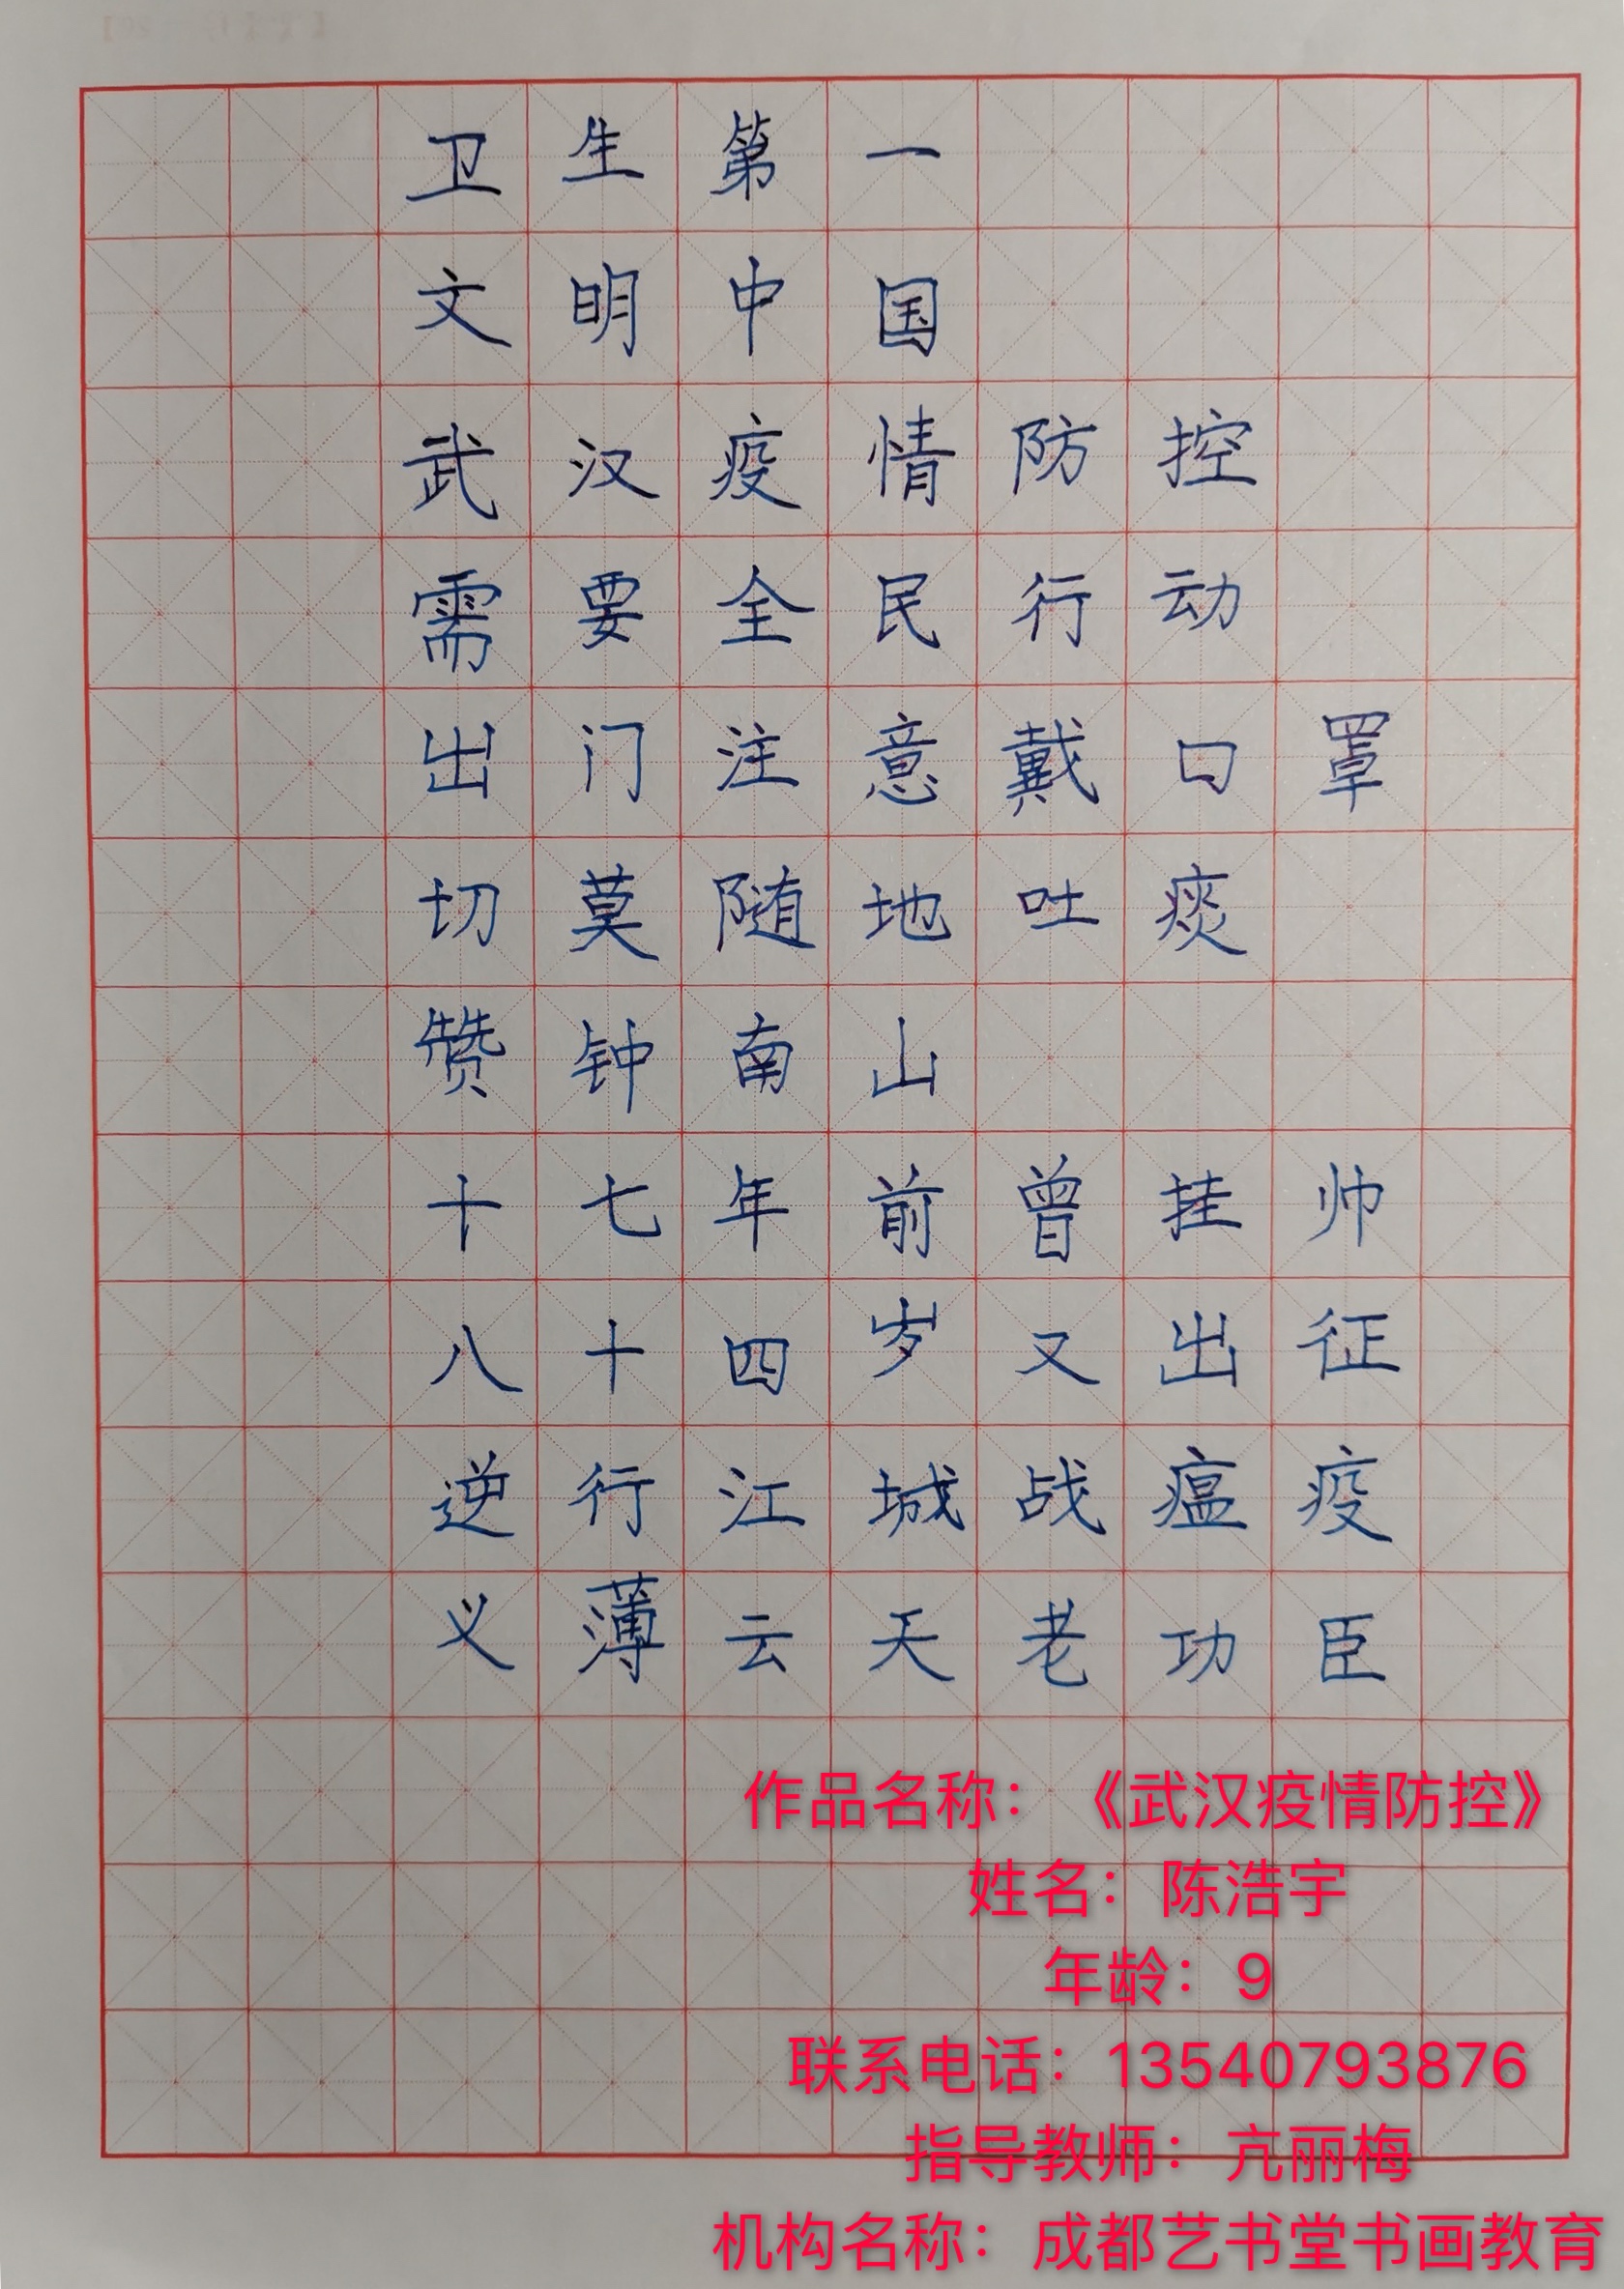 卫生第一
文明中国
武汉疫情防控
需要全民行动
出门注意戴口罩
切莫随地吐痰
赞钟南山
十七年前曾挂帅
八十四岁又出征
逆行江城战瘟疫
义薄云天老功臣
作品名称：《武汉疫情防控》
姓名：陈浩宇
年龄：9
联系电话：13540793876
指导教师：亢丽梅
机构名称：成都艺书堂书画教育